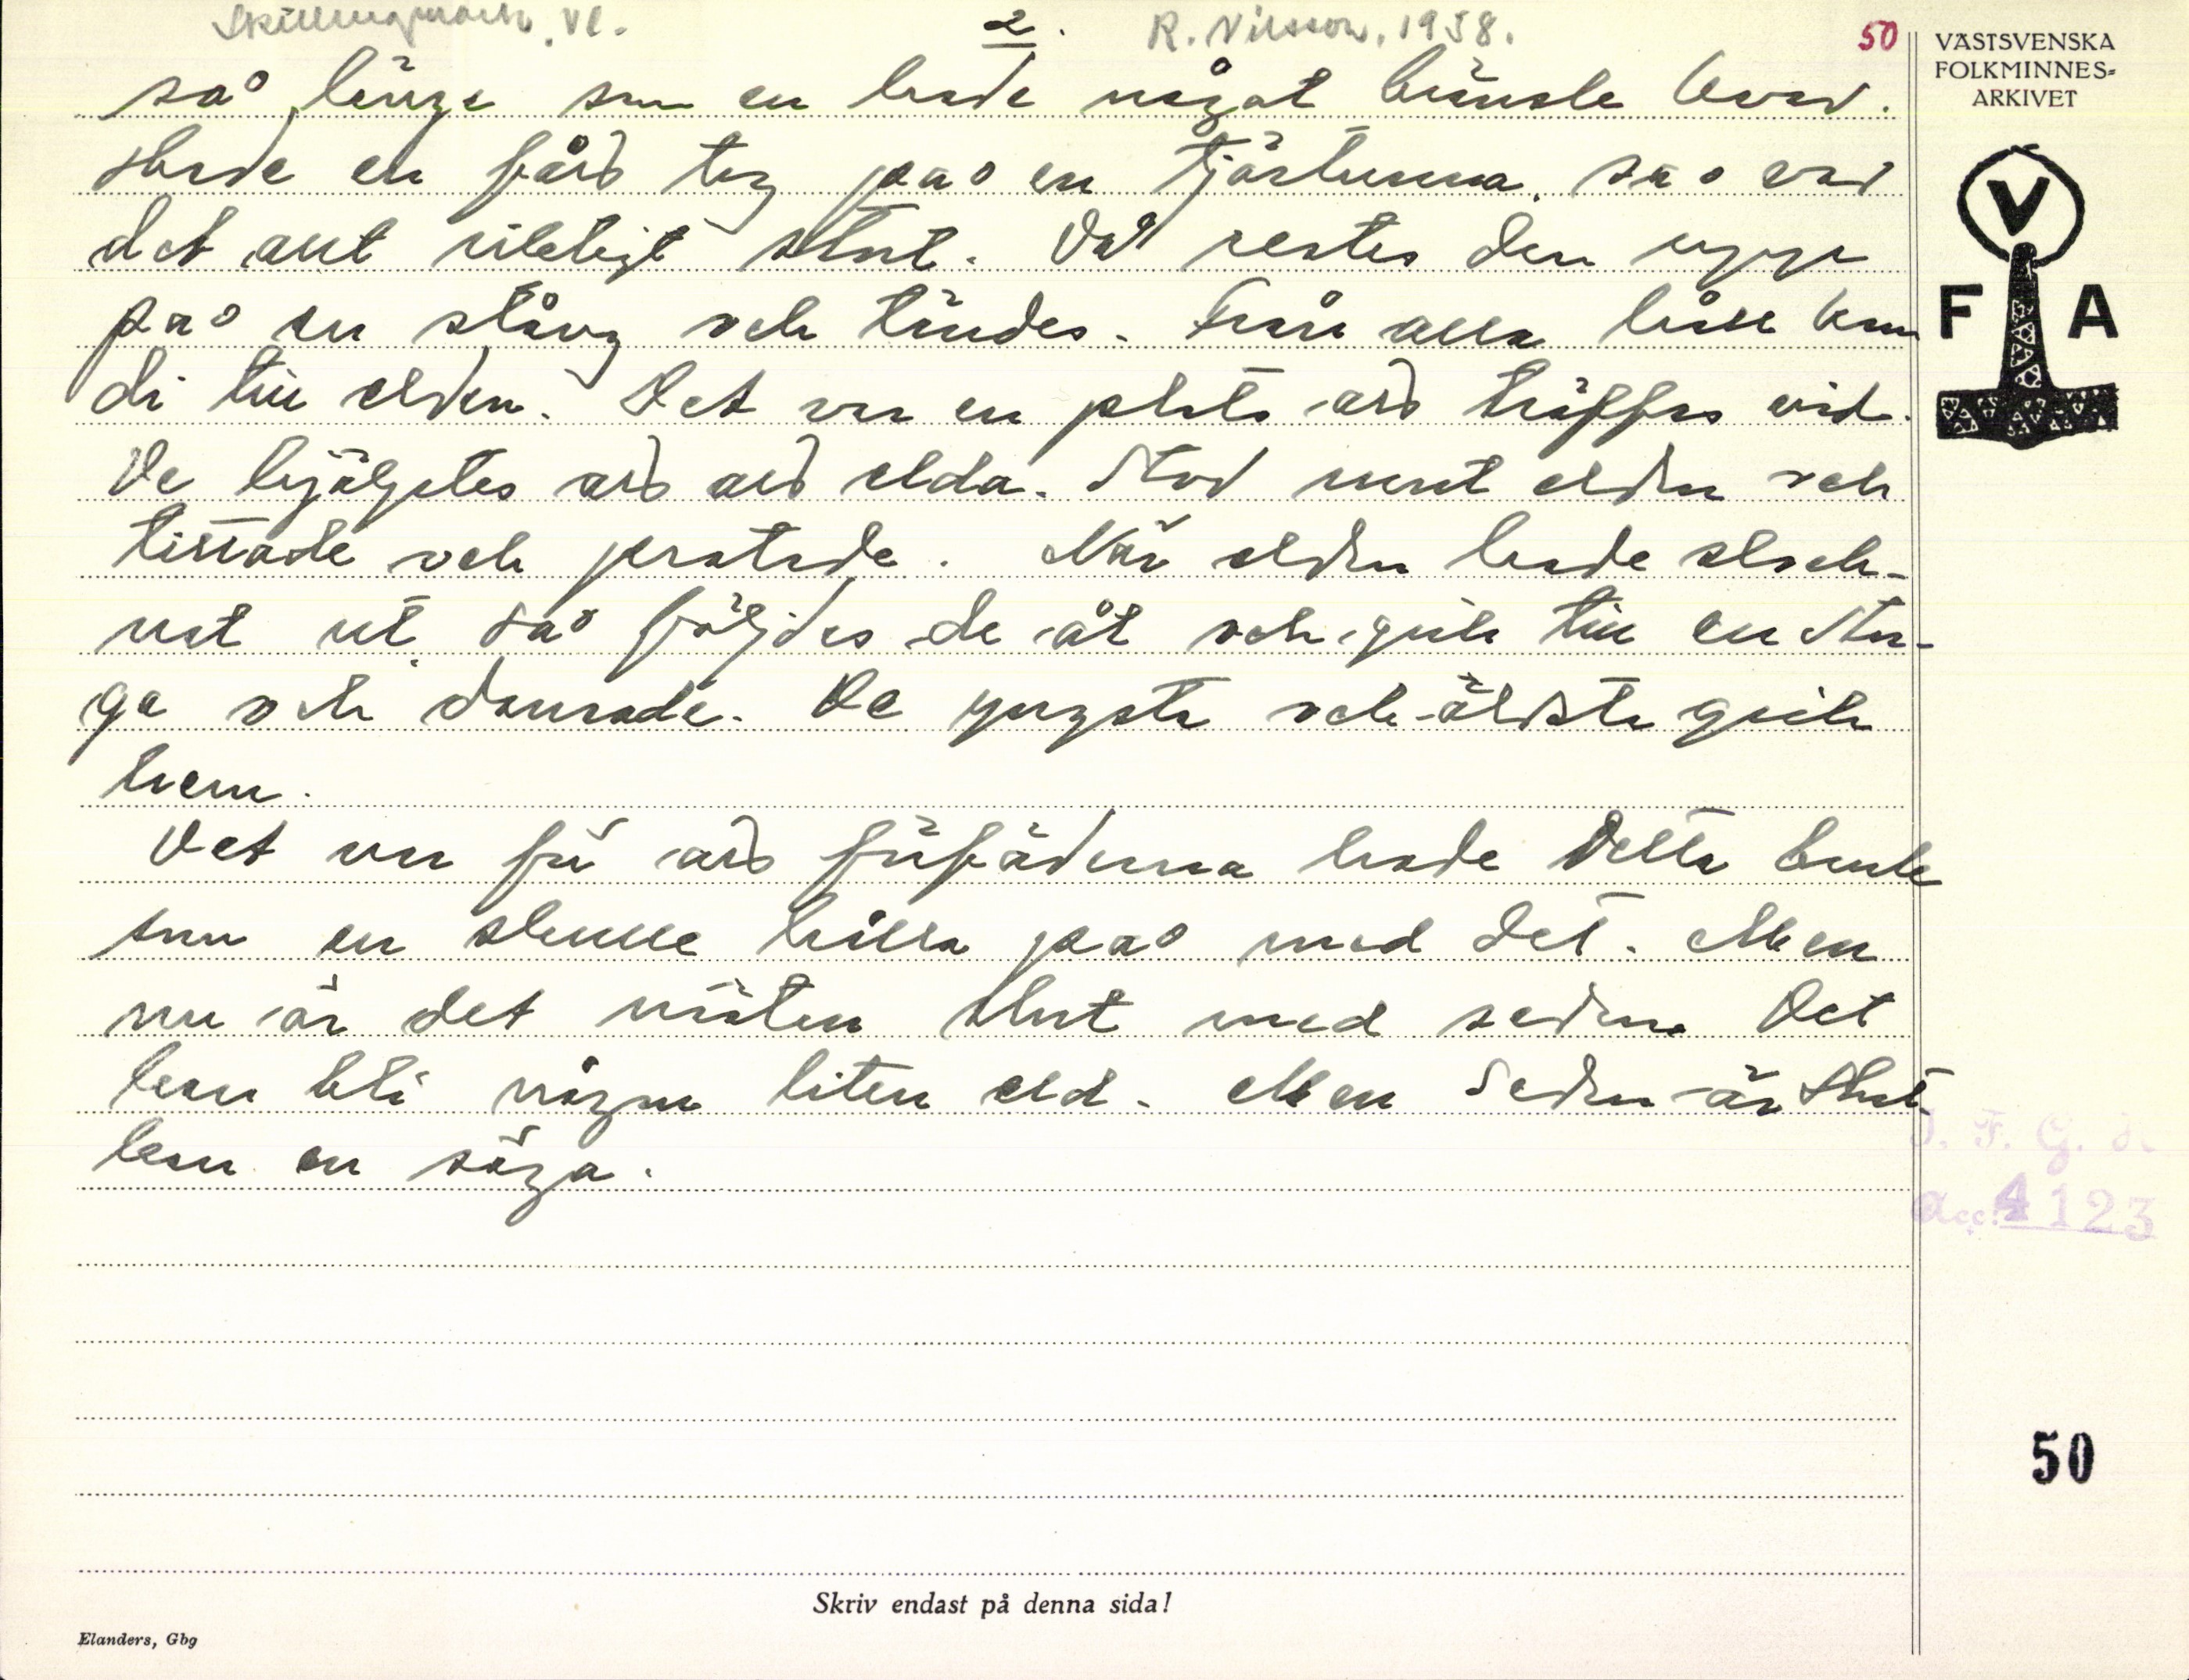 Skillingmark. Vl. 2. R. Nilsson, 1938. 50
så länge som en hade något bränsle kvar.
Hade en fått tag på en tjärtunna, så var
det ant riktigt stort. Då restes den uppe
på en stång och tändes. Från alla håll kom
di till elden. Det var en plats att träffas vid.
De hjälptes att att elda. Stod runt elden och
tittade och pratade. När elden hade slock-
nat ut så följdes de åt och gick till en stu-
ga och dansade. De yngsta och äldsta gick
hem.
Det var för att förfäderna hade detta bruk
som en skulle hålla på med det. Men
nu är det nästan slut med seden. Det
kan bli någon liten eld. Men seden är slut
kan en säga.
VÄSTSVENSKA
FOLKMINNES-
ARKIVET
V
F A
I. F. G. H.
Acc. 4123
50
Skriv endast på denna sida!
Elanders, Gbg